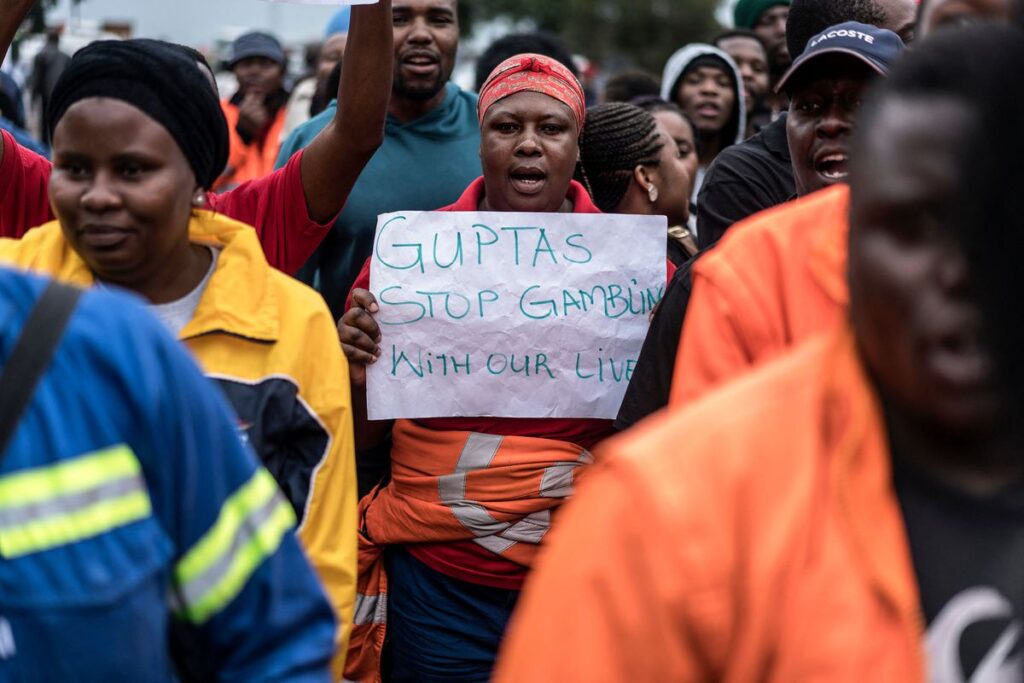 LACOSTE
GUPTAS
STOP GAMBLIN
WITH OUR LIVE